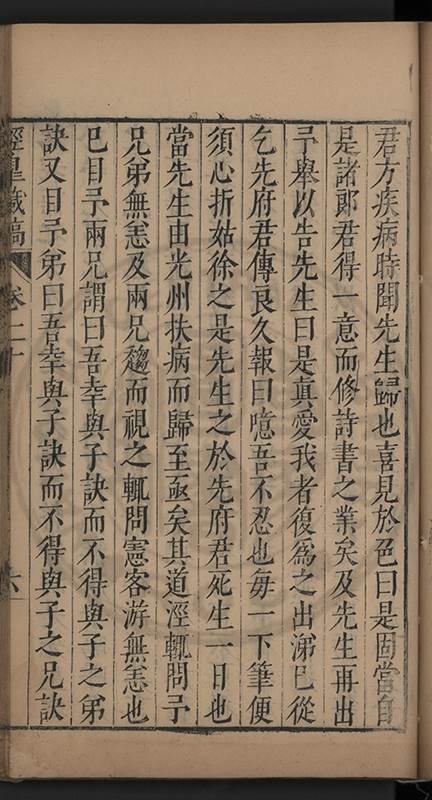 君方疾病時聞先生歸也喜見於色曰是固當自
是諸郎君得一意而修詩書之業矣及先生再出
予舉以告先生曰是真愛我者復為之出涕已從
乞先府君傳良久報曰噫吾不忍也每一下筆便
須心折姑徐之是先生之於先府君死生一日也
當先生由光州扶病而歸至亟矣其道涇輒問予
兄弟無恙及兩兄趨而視之輒問憲客游無恙也
已目予兩兄謂曰吾幸與子訣而不得與子之弟
訣又目予弟曰吾幸與子訣而不得與子之兄訣
涇皋藏稿 卷二十 六